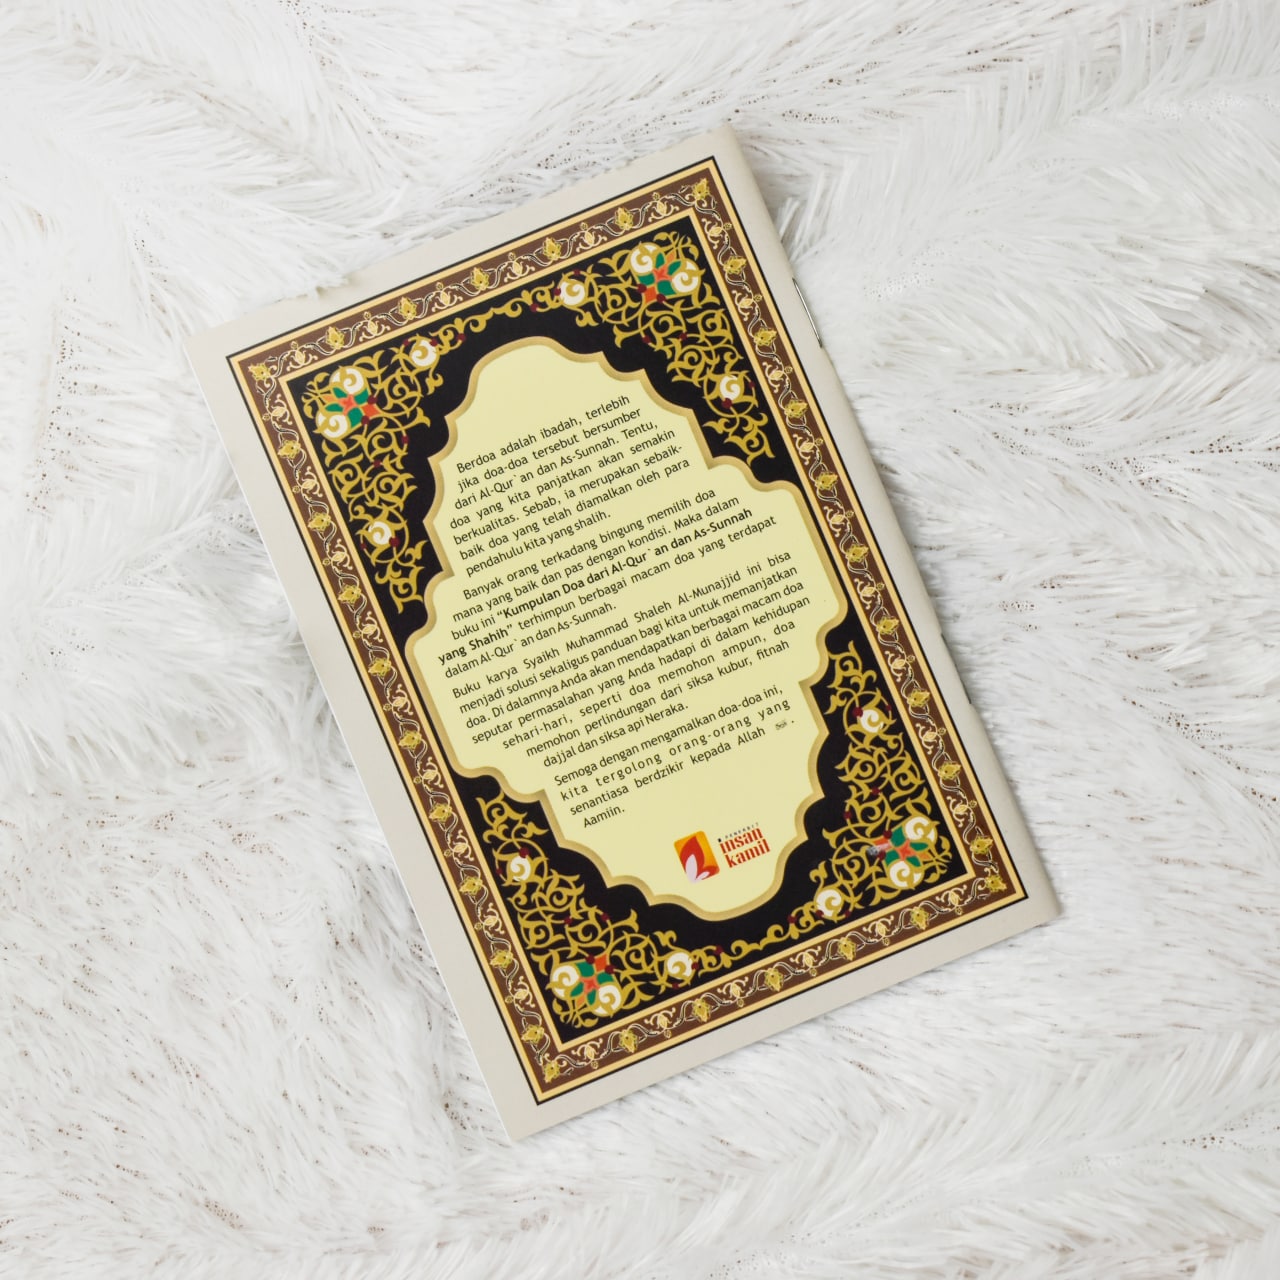 Berdoa adalah ibadah, terlebih
jika doa-doa tersebut bersumber
dari Al-Qur`an dan As-Sunnah. Tentu,
doa yang kita panjatkan akan semakin
berkualitas. Sebab, ia merupakan sebaik-
baik doa yang telah diamalkan oleh para
pendahulu kita yang shalih.
Banyak orang terkadang bingung memilih doa
mana yang baik dan pas dengan kondisi. Maka dalam
buku ini "Kumpulan Doa dari Al-Qur`an dan As-Sunnah
yang Shahih" terhimpun berbagai macam doa yang terdapat
dalam Al-Qur`an dan As-Sunnah.
Buku karya Syaikh Muhammad Shaleh Al-Munajjid ini bisa
menjadi solusi sekaligus panduan bagi kita untuk memanjatkan
doa. Di dalamnya Anda akan mendapatkan berbagai macam doa
seputar permasalahan yang Anda hadapi di dalam kehidupan
sehari-hari, seperti doa memohon ampun, doa
memohon perlindungan dari siksa kubur, fitnah
dajjal dan siksa api Neraka.
Semoga dengan mengamalkan doa-doa ini,
kita tergolong orang-orang yang
senantiasa berdzikir kepada Allah .
Aamiin.
PENERBIT
insan
kamil